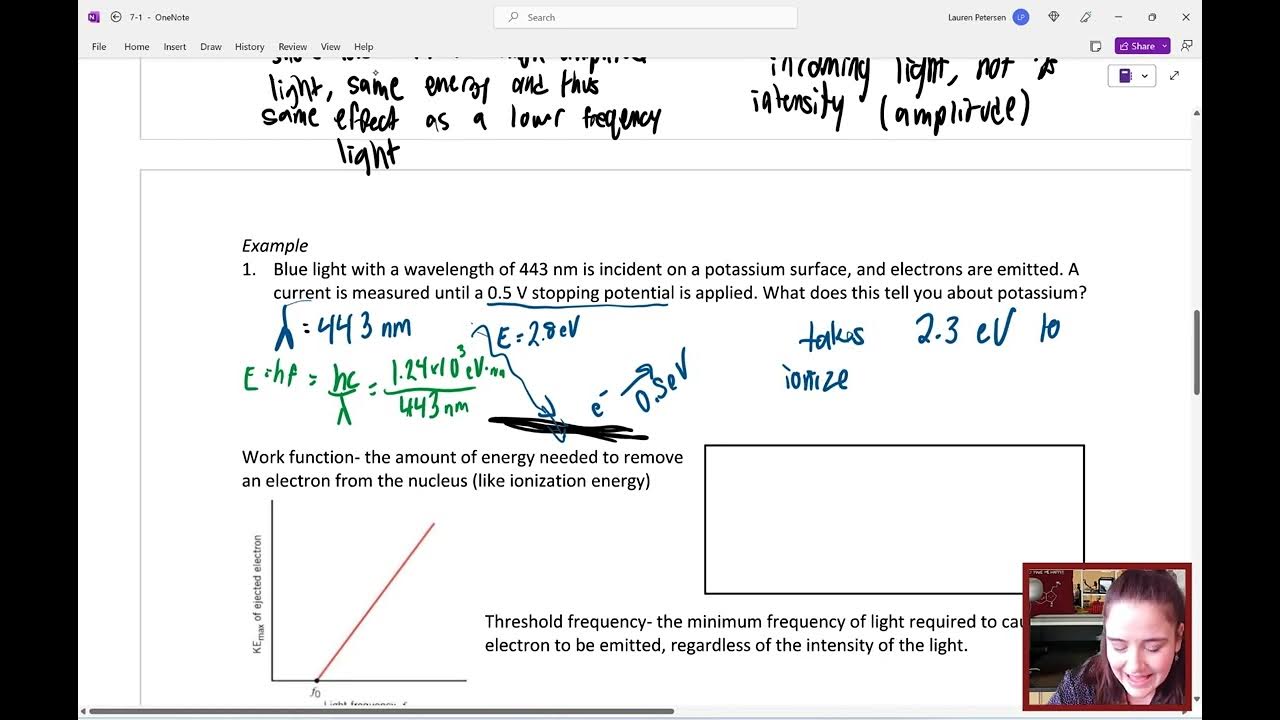 7-1 - OneNote
Search
Lauren Petersen
LP
File Home Insert Draw History Review View Help
Share
light, same energy and thus
same effect as a lower frequency
light
incoming light, not is
intensity (amplitude)
Example
1. Blue light with a wavelength of 443 nm is incident on a potassium surface, and electrons are emitted. A
current is measured until a 0.5 V stopping potential is applied. What does this tell you about potassium?
λ = 443 nm
E = 2.8 eV
takes 2.3 eV to
ionize
E = hf = hc/λ = 1.24x10³ eV·nm / 443 nm
e⁻ 0.5 eV
Work function- the amount of energy needed to remove
an electron from the nucleus (like ionization energy)
KEmax of ejected electron
f₀
Light frequency, f
Threshold frequency- the minimum frequency of light required to
electron to be emitted, regardless of the intensity of the light.